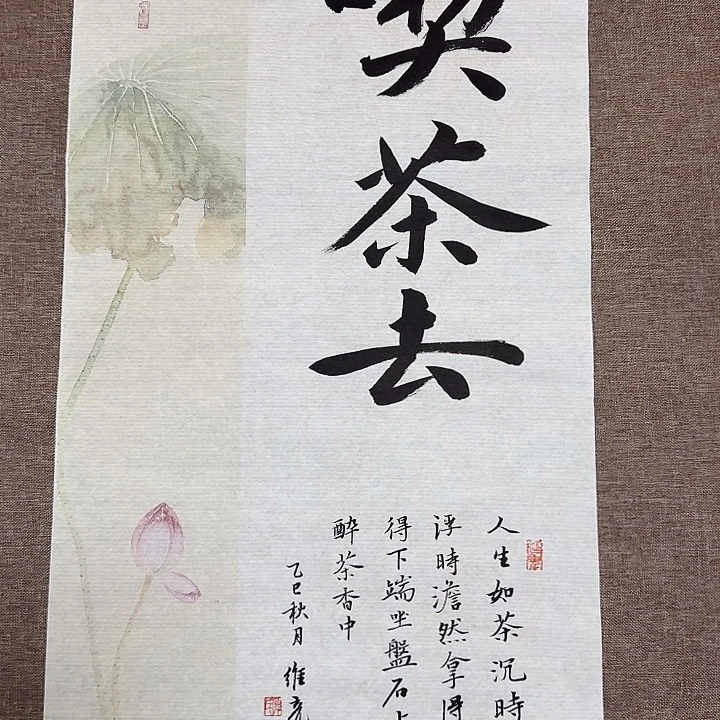 喫茶去
人生如茶沉時
浮時澹然拿得
得下端坐盤石上
醉茶香中
乙巳秋月 维亮